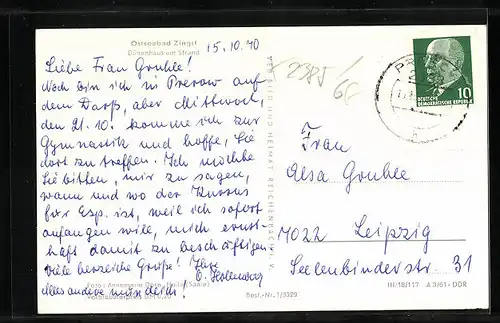 Ostseebad Zingst
Dünenhaus am Strand
15.10.70
Liebe Frau Gruhle!
Noch bin ich in Prerow auf
dem Darß, aber Mittwoch,
den 21.10. komme ich zur
Gymnastik und hoffe, Sie
dort zu treffen. Ich möchte
Sie bitten, mir zu sagen,
wann und wo der Kursus
für Esp. ist, weil ich sofort
anfangen will, mich ernst-
haft damit zu beschäftigen.
Viele herzliche Grüße! Ihre
Alles andere mündlich!
Foto: Annemarie (Saale)
BILD UND HEIMAT REICHENBACH I. V.
Best.-Nr. 1/9329
2385/66
10
DEUTSCHE
DEMOKRATISCHE REPUBLIK
Frau
Elsa Gruhle
7022 Leipzig
Seelenbinderstr. 31
III/18/117 A 3/61 - DDR